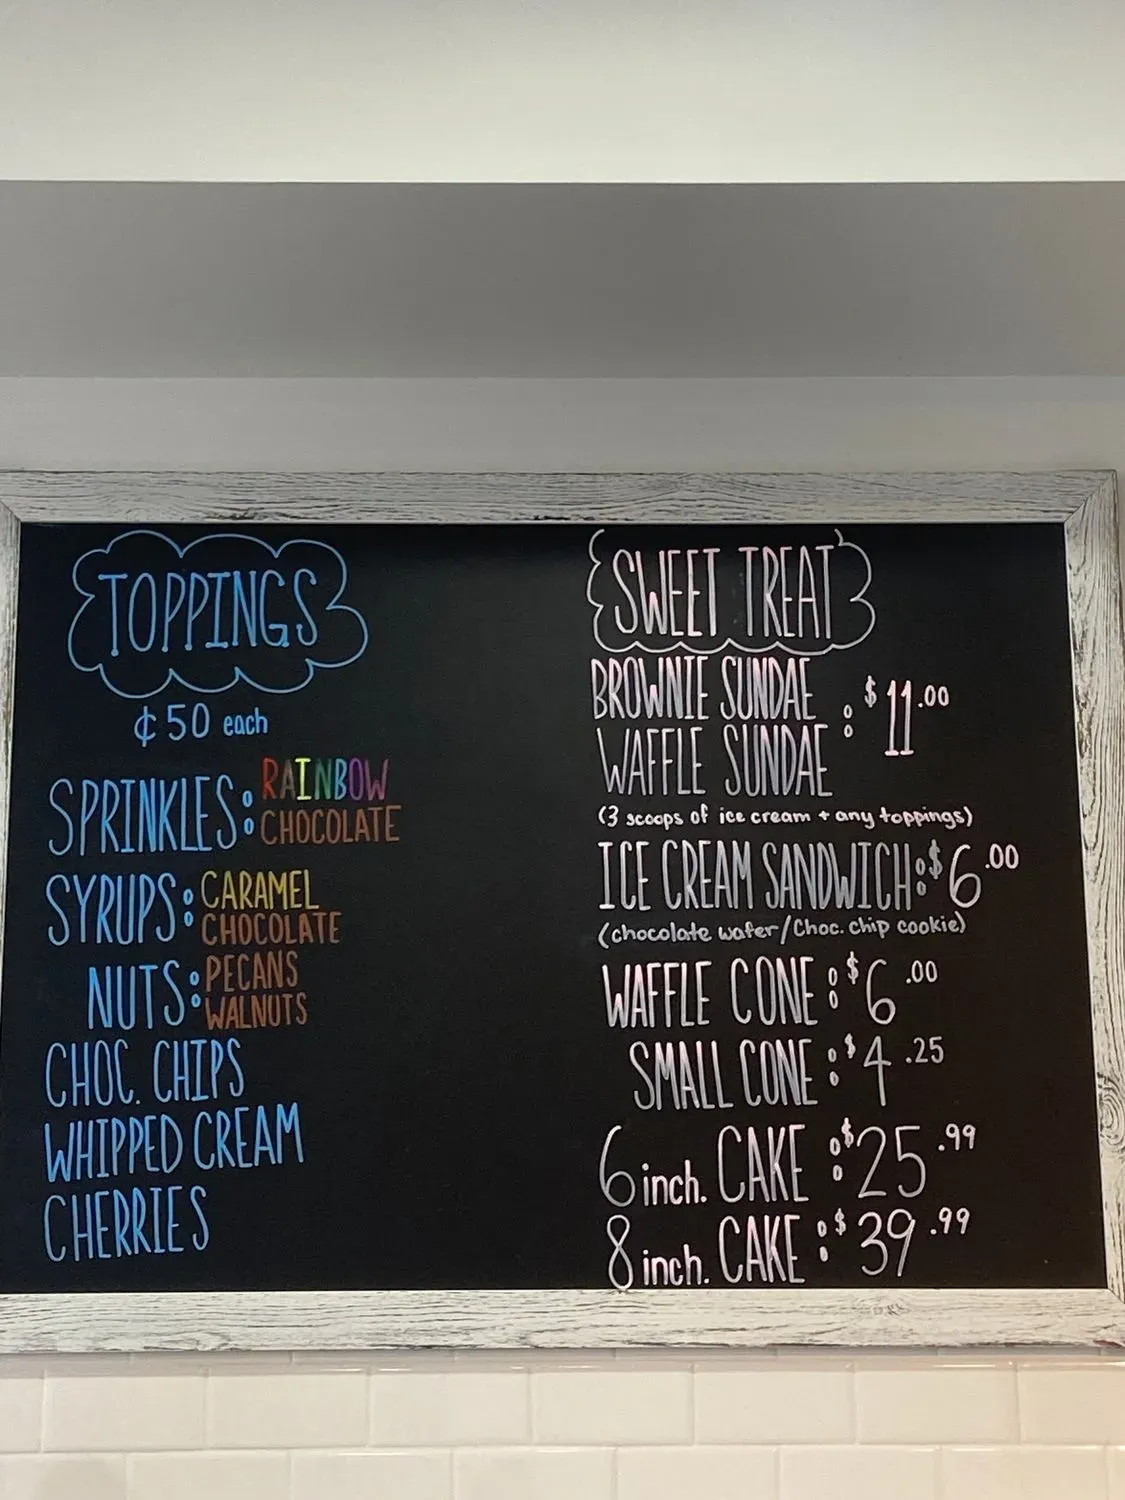 TOPPINGS
¢50 each
SPRINKLES: RAINBOW
CHOCOLATE
SYRUPS: CARAMEL
CHOCOLATE
NUTS: PECANS
WALNUTS
CHOC. CHIPS
WHIPPED CREAM
CHERRIES
SWEET TREAT
BROWNIE SUNDAE
WAFFLE SUNDAE : $11.00
(3 scoops of ice cream + any toppings)
ICE CREAM SANDWICH: $6.00
(chocolate wafer/Choc. chip cookie)
WAFFLE CONE: $6.00
SMALL CONE: $4.25
6 inch. CAKE: $25.99
8 inch. CAKE: $39.99